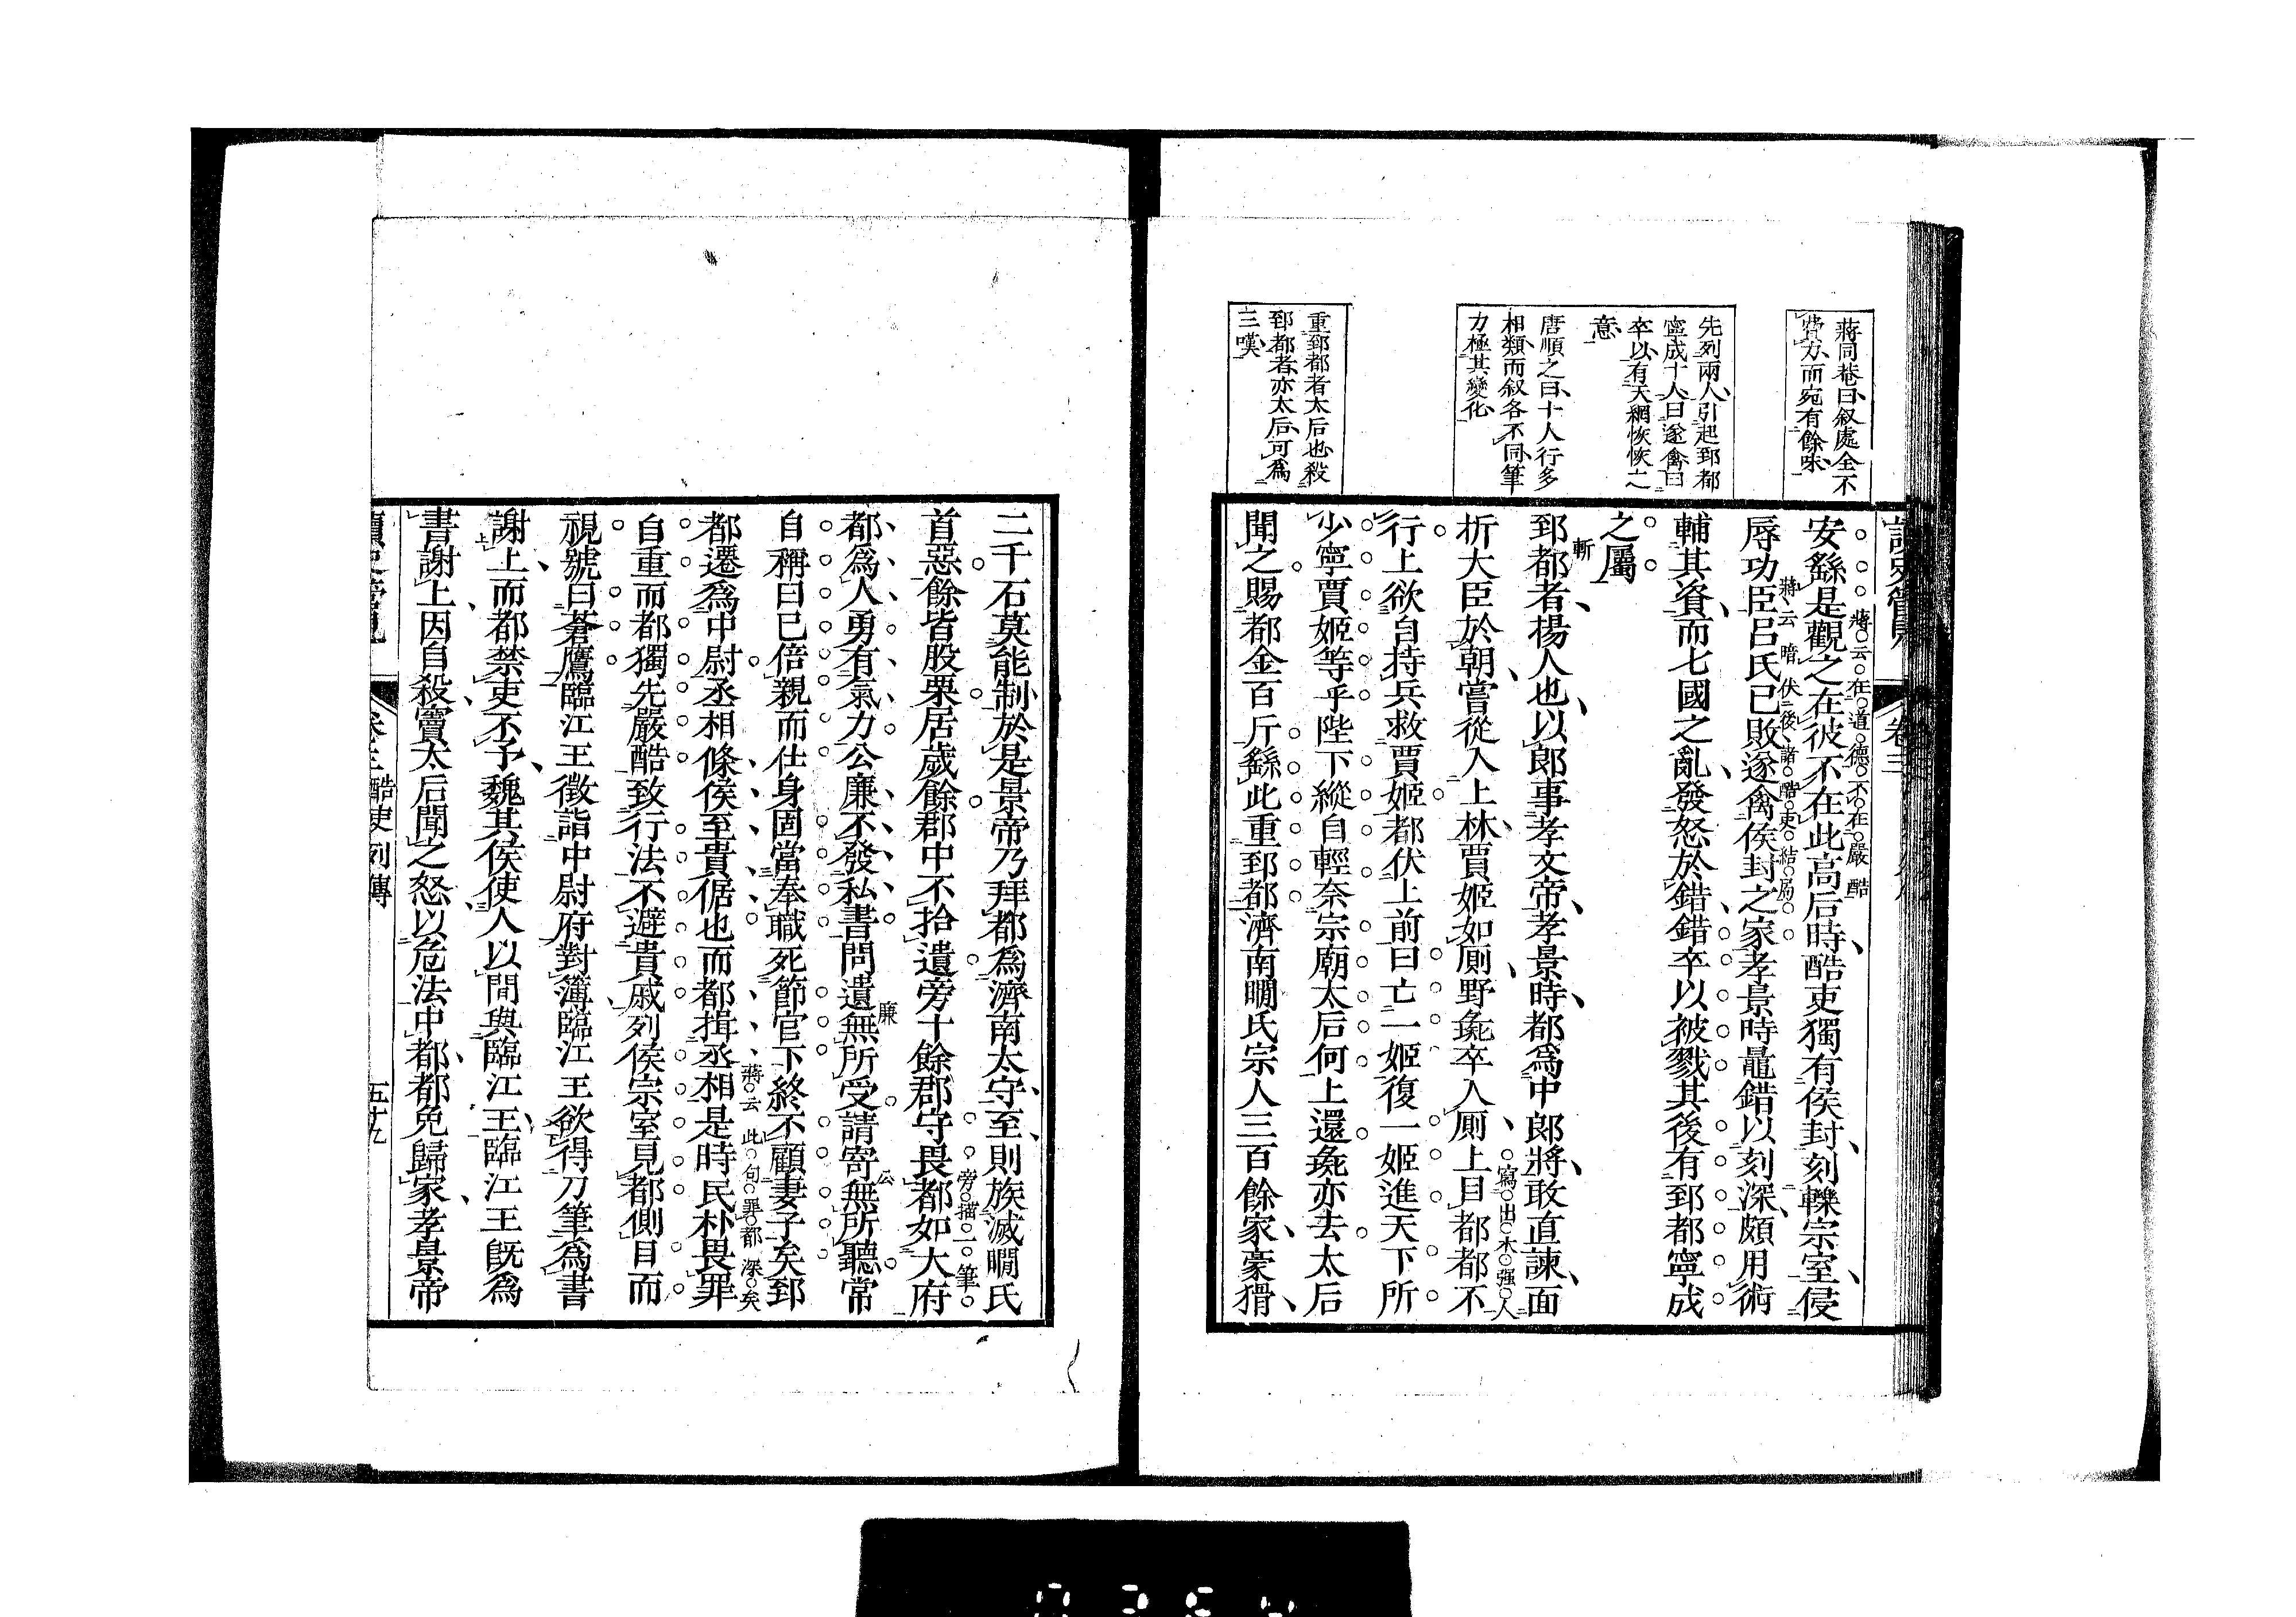 蔣同巷曰叙處全不
費力而宛有餘味
先列兩人引起郅都
寧成十人曰遂禽曰
卒以有天網恢恢之
意
唐順之曰十人行多
相類而叙各不同筆
力極其變化
重郅都者太后也殺
郅都者亦太后可爲
三嘆
卷三
蔣云在道德不在嚴酷
安繇是觀之在彼不在此高后時酷吏獨有侯封刻轢宗室侵
蔣云暗伏後諸酷吏結局
辱功臣呂氏已敗遂禽侯封之家孝景時鼂錯以刻深頗用術
輔其資而七國之亂發怒於錯錯卒以被戮其後有郅都寧成
之屬
斬
郅都者揚人也以郎事孝文帝孝景時都爲中郎將敢直諫面
寫出木强人
折大臣於朝嘗從入上林賈姬如厠野彘卒入厠上目都都不
行上欲自持兵救賈姬都伏上前曰亡一姬復一姬進天下所
少寧賈姬等乎陛下縱自輕奈宗廟太后何上還彘亦去太后
聞之賜都金百斤繇此重郅都濟南瞯氏宗人三百餘家豪猾
二千石莫能制於是景帝乃拜都爲濟南太守至則族滅瞯氏
旁描一筆
首惡餘皆股栗居歲餘郡中不拾遺旁十餘郡守畏都如大府
廉
公
都爲人勇有氣力公廉不發私書問遺無所受請寄無所聽常
自稱曰已倍親而仕身固當奉職死節官下終不顧妻子矣郅
蔣云此句罪都深矣
都遷爲中尉丞相條侯至貴倨也而都揖丞相是時民朴畏罪
自重而都獨先嚴酷致行法不避貴戚列侯宗室見都側目而
視號曰蒼鷹臨江王徵詣中尉府對簿臨江王欲得刀筆爲書
謝上而都禁吏不予魏其侯使人以間與臨江王臨江王旣爲
書謝上因自殺竇太后聞之怒以危法中都都免歸家孝景帝
卷三 酷吏列傳
五十九